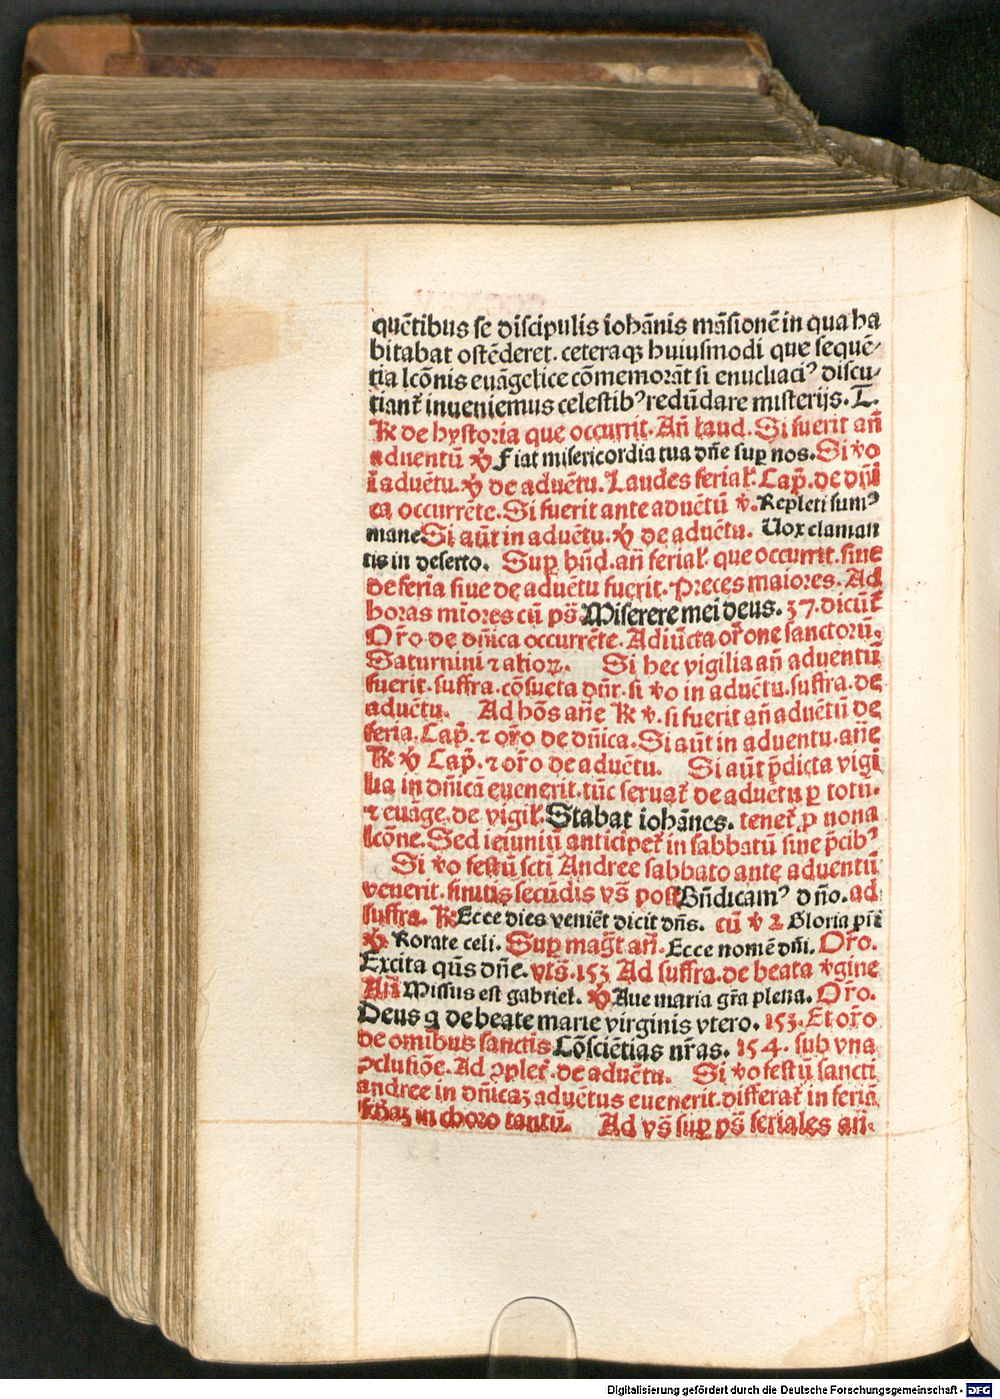 quētibus se discipulis iohānis māsionē in qua ha
bitabat ostēderet. ceteraq₃ huiusmodi que sequē⸗
tia lcōnis euāgelice cōmemorāt si enucliaciꝰ discu⸗
tiant᷑ inueniemus celestibꝰ redūdare misterijs. T.
℟ de hystoria que occurrit. Añ laud. Si fuerit añ
aduentū ℣ Fiat misericordia tua dn̄e sup̱ nos. Si v̊o
ī aduētu. ℣ de aduētu. Laudes ferial᷑. Cap̄. de dn̄i
ca occurrēte. Si fuerit ante aduētū v̓. Repleti sumꝰ
mane Si aūt in aduētu. ℣ de aduētu. Uox claman
tis in deserto. Sup̱ bn̄d. añ ferial᷑. que occurrit. siue
de feria siue de aduētu fuerit. Preces maiores. Ad
horas mīores cū ps̄ Miserere mei deus. 37. dicūt᷑
Or̄o de dn̄ica occurrēte. Adiūcta or̄one sanctorū.
Saturnini ⁊ alioꝝ. Si hec vigilia añ aduentū
fuerit. suffra. cōsueta dn̄r. si v̊o in aduētu. suffra. de
aduētu. Ad hōs ane ℟ v̓. si fuerit añ aduētū de
feria. Cap̄. ⁊ or̄o de dn̄ica. Si aūt in aduentu. ane
℟ ℣ Cap̄. ⁊ or̄o de aduētu. Si aūt p̄dicta vigi
lia in dn̄icā euenerit. tūc seruat᷑ de aduētu p̱ totū.
⁊ euāge. de vigil᷑. Stabat iohānes. tenet᷑ p̱ nona
lcōne. Sed ieiuniū anticipet᷑ in sabbatū sine p̄cibꝰ
Si v̊o festū sc̄ti Andree sabbato ante aduentū
venerit. finitis secūdis vs̄ post Bn̄dicamꝰ dn̄o. ad
suffra. ℟ Ecce dies veniēt dicit dn̄s. cū v̓ ⁊ Gloria pr̄i
℣. Rorate celi. Sup̱ maḡt añ. Ecce nomē dn̄i. Or̄o.
Excita qūs dn̄e. vts̄. 153 Ad suffra. de beata v̓gine
Añ Missus est gabriel. ℣ Aue maria gr̄a plena. Or̄o.
Deus q̱ de beate marie virginis vtero. 153. Et or̄o
de omībus sanctis Cōsciētias nr̄as. 154. sub vna
ꝯclusiōe. Ad ꝯplet᷑. de aduētu. Si v̊o festū sancti
andree in dn̄ica₃ aduētus euenerit. differat᷑ in feriā
scd̄a₃ in choro tantū. Ad vs̄ sup̱ ps̄ feriales añ.
Digitalisierung gefördert durch die Deutsche Forschungsgemeinschaft - DFG